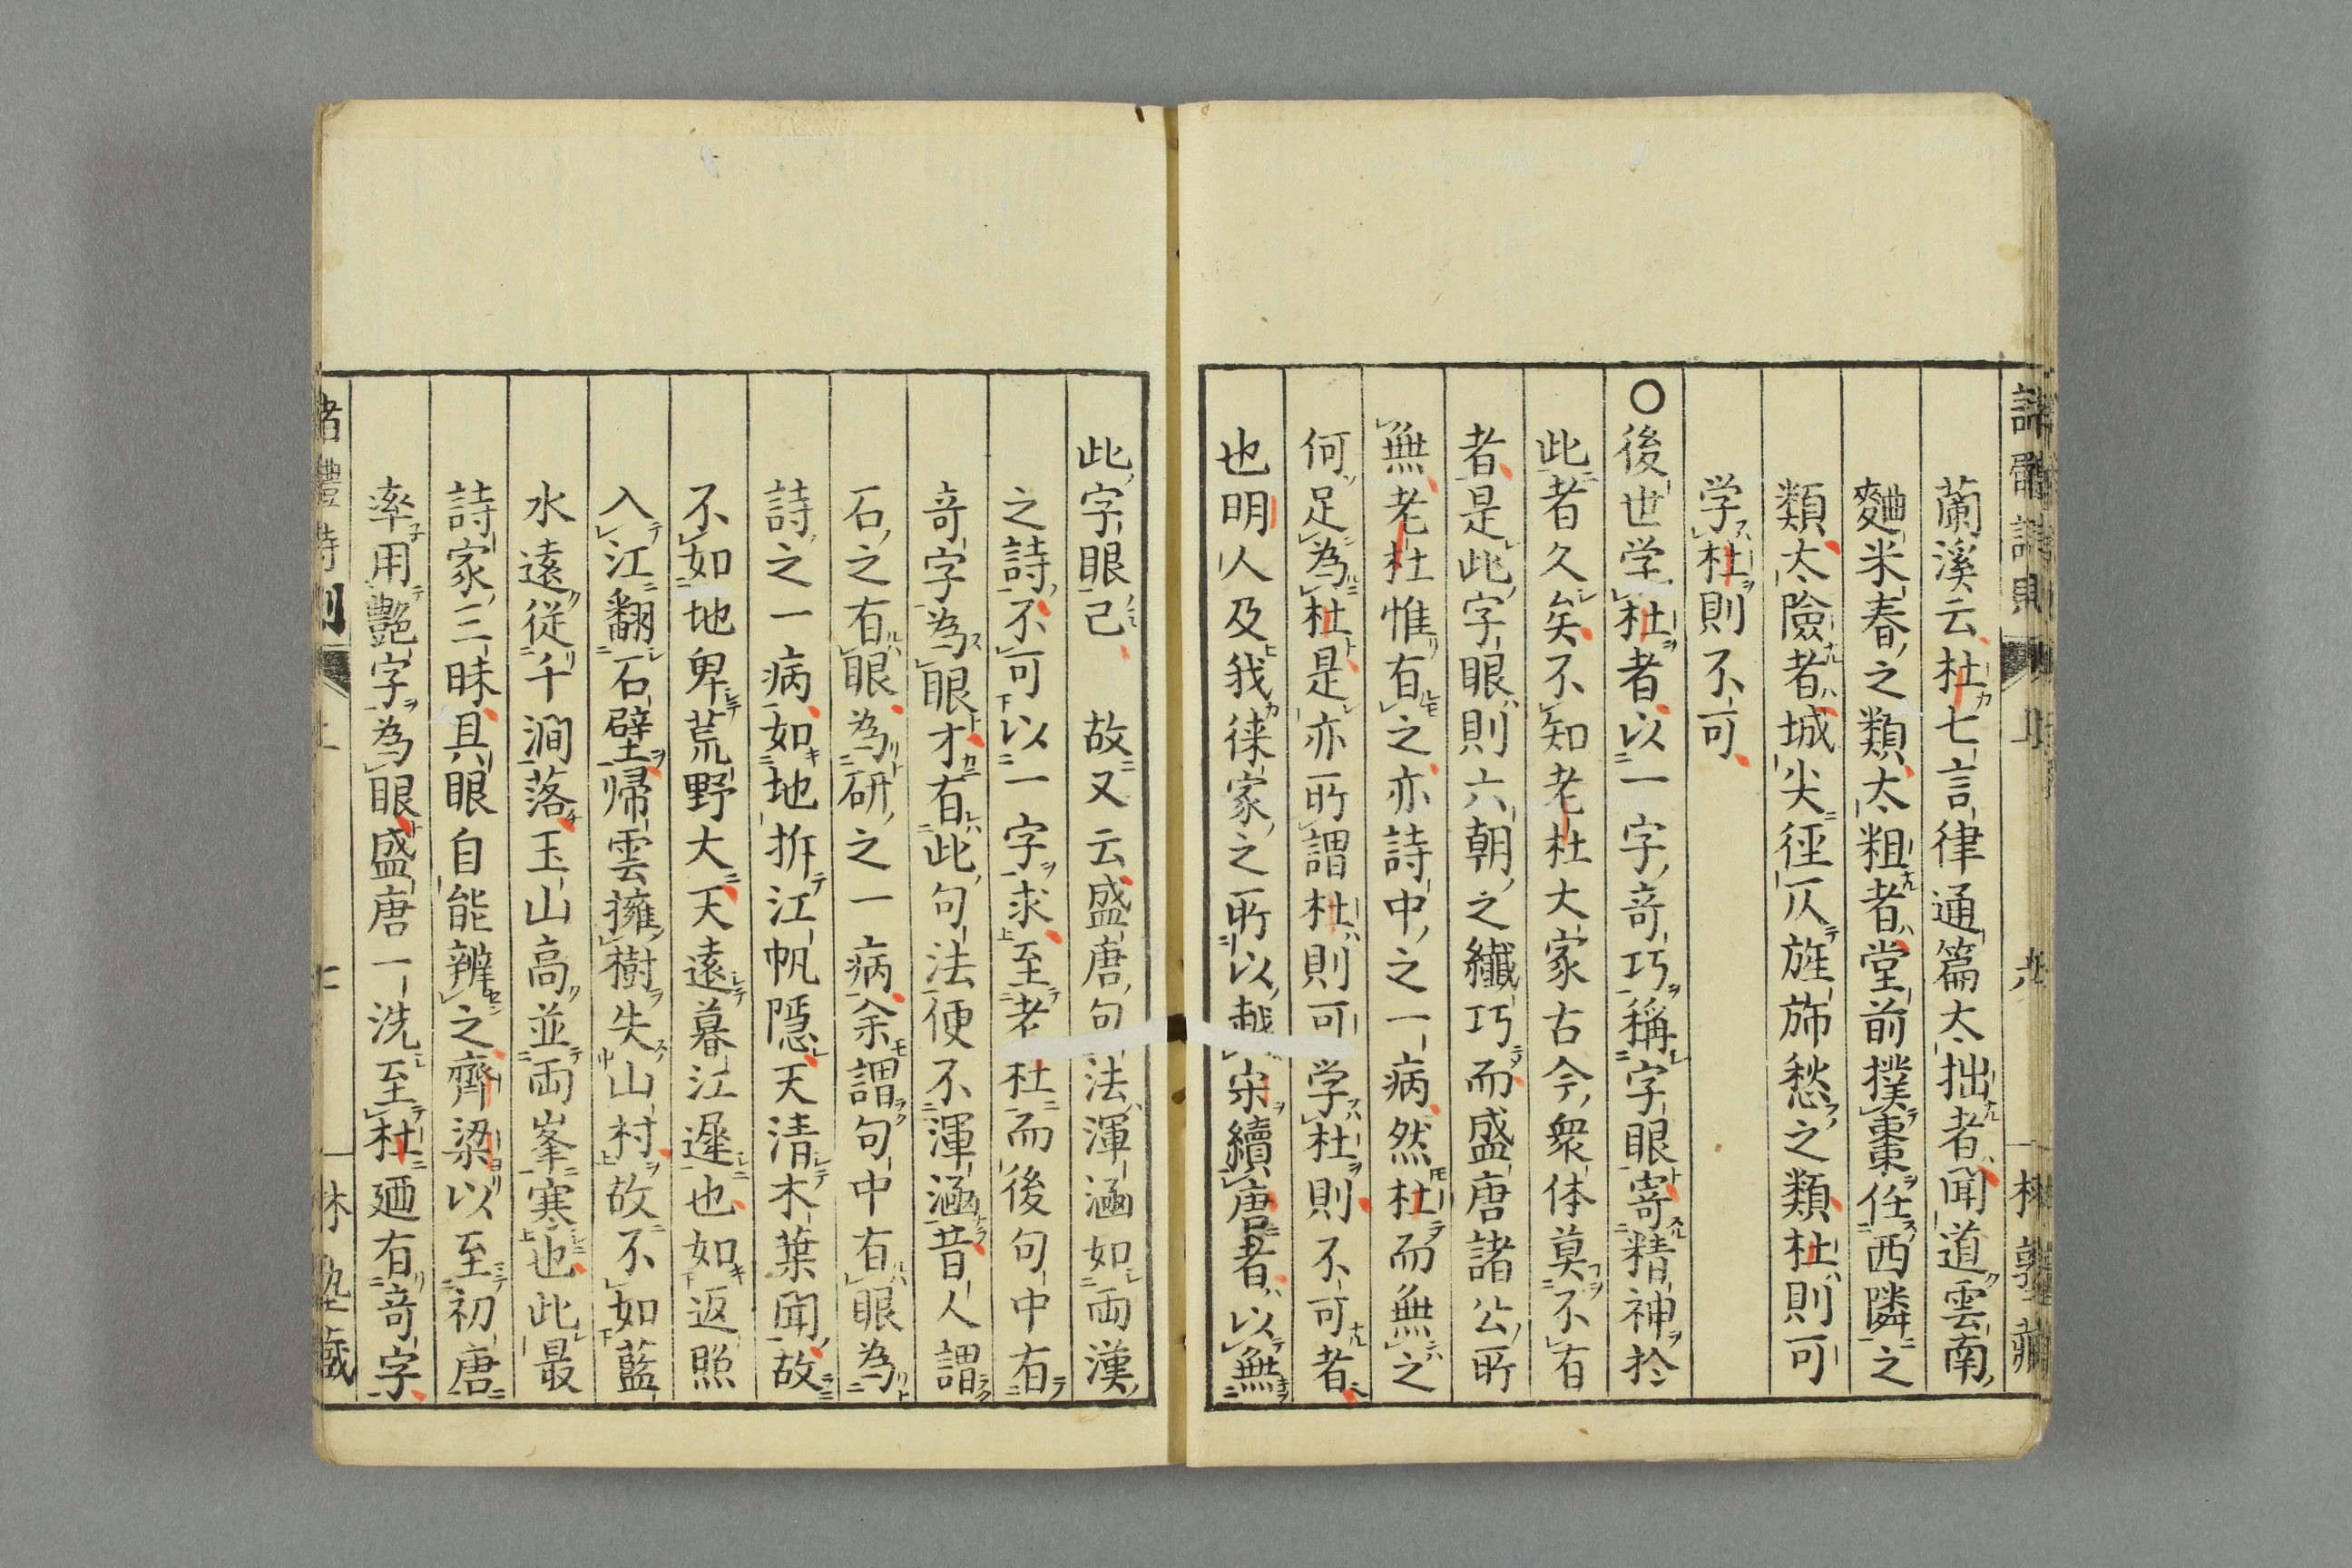 蘭溪云杜七言律通篇太拙者聞道雲南
麯米春之類太粗者堂前撲棗任西隣之
類太險者城尖徑仄旌旆愁之類杜則可
学杜則不可
〇後世学杜者以一字竒巧稱字眼寄精神於
此者久矣不知老杜大家古今衆体莫不有
者是此字眼則六朝之纎巧而盛唐諸公所
無老杜惟有之亦詩中之一病然杜而無之
何足為杜是亦所謂杜則可学杜則不可者
也明人及我徠家之所以越宋續唐者以無
此字眼己 故又云盛唐句法渾涵如両漢
之詩不可以一字求至老杜而後句中有
竒字為眼才有此句法便不渾涵昔人謂
石之有眼為研之一病余謂句中有眼為
詩之一病如地拆江帆隠天清木葉聞故
不如地卑荒野大天遠暮江遲也如返照
入江翻石壁歸雲擁樹失山村故不如藍
水遠從千澗落玉山高並両峯寒也此最
詩家三昧具眼自能辨之齊梁以至初唐
率用艷字為眼盛唐一洗至杜廼有竒字